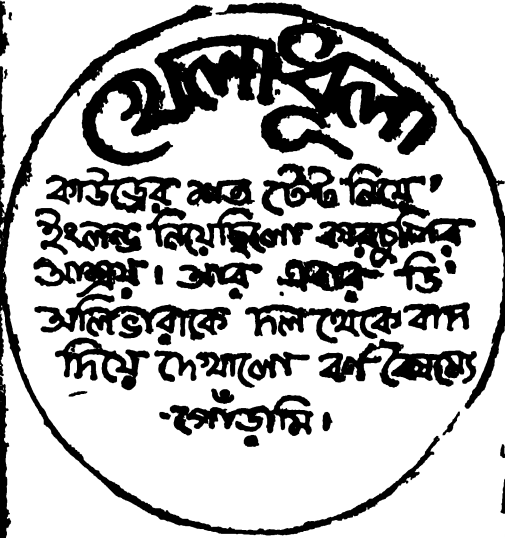 খেলাধুলা
কাউড্রের শত টেস্ট নিয়ে
ইংলন্ড নিয়েছিলো কারচুপির
আশ্রয়। আর এবার ডি'
অলিভারাকে দল থেকে বাদ
দিয়ে দেখালো বর্ণ বৈষম্যে
গোঁড়ামি।